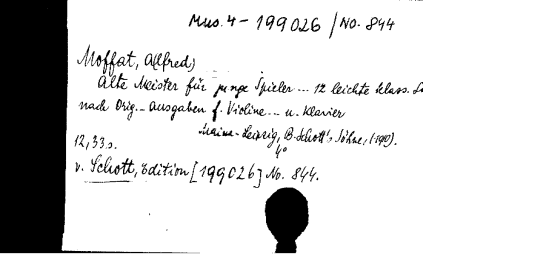 Mus. 4 - 199026 / No. 844
Moffat, A(lfred)
Alte Meister für junge Spieler ... 12 leichte klass.
nach Orig.-Ausgaben f. Violine ... u. Klavier
Mainz-Leipzig, B. Schott's Söhne,
4°
12,33 s.
v. Schott, Edition [199026] No. 844.